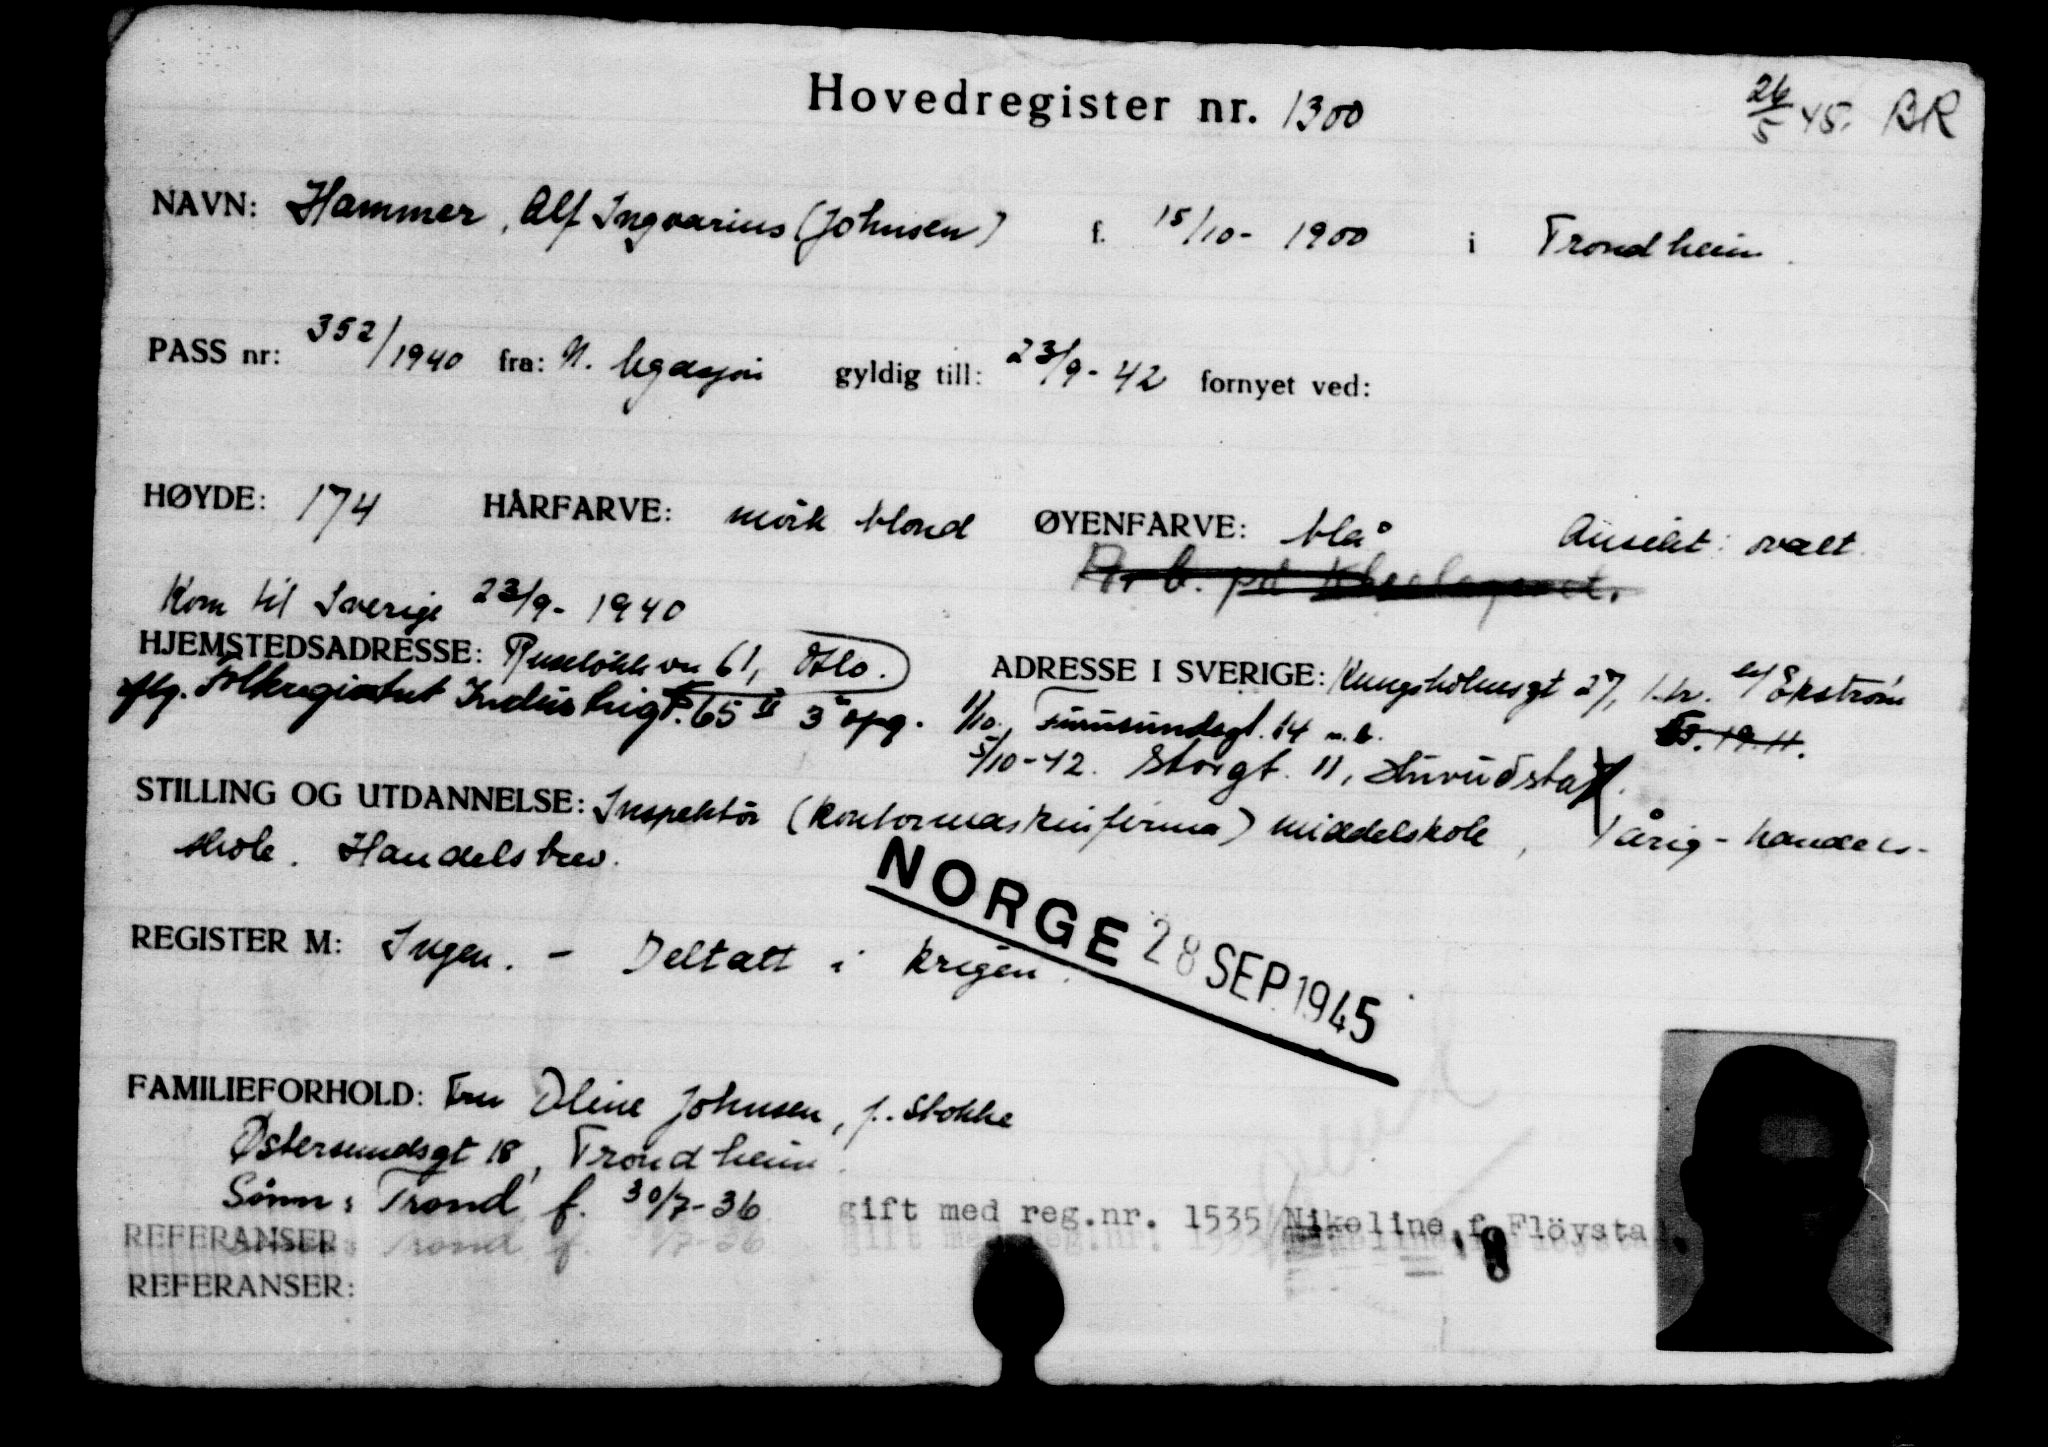 Hovedregister nr. 1300
26/5 45. BR
NAVN: Hammer, Alf Ingvarius (Johnsen) f. 15/10- 1900 i Trondheim.
PASS nr: 352/1940 fra: N. legasjon gyldig till: 23/9- 42 fornyet ved:
HØYDE: 174 HÅRFARVE: mörk blond ØYENFARVE: blå Ansikt: ovalt.
Kom til Sverige 23/9- 1940
HJEMSTEDSADRESSE: Ruseløkkvn 61, Oslo. ADRESSE I SVERIGE: Kungsholmsgt 27, 1. tr. c/ Ekström
iflg. Folkregistret Industrigt. 65 II 3 opg. 1/10. Furusundsgt. 14 n.b.
5/10-42. Storgt. 11, Huvudsta.
STILLING OG UTDANNELSE: Inspektör (kontormaskinfirma) middelskole, 1 årig - handels-
skole. Handelsbrev.
NORGE 28 SEP 1945
REGISTER M: Ingen. - Deltatt i krigen.
FAMILIEFORHOLD: Fru Oline Johnsen, f. Stokke
Østersundsgt 18, Trondheim.
Sönn: Trond, f. 30/7-36 gift med reg.nr. 1535/Nikoline, f. Flöysta
REFERANSER
REFERANSER: